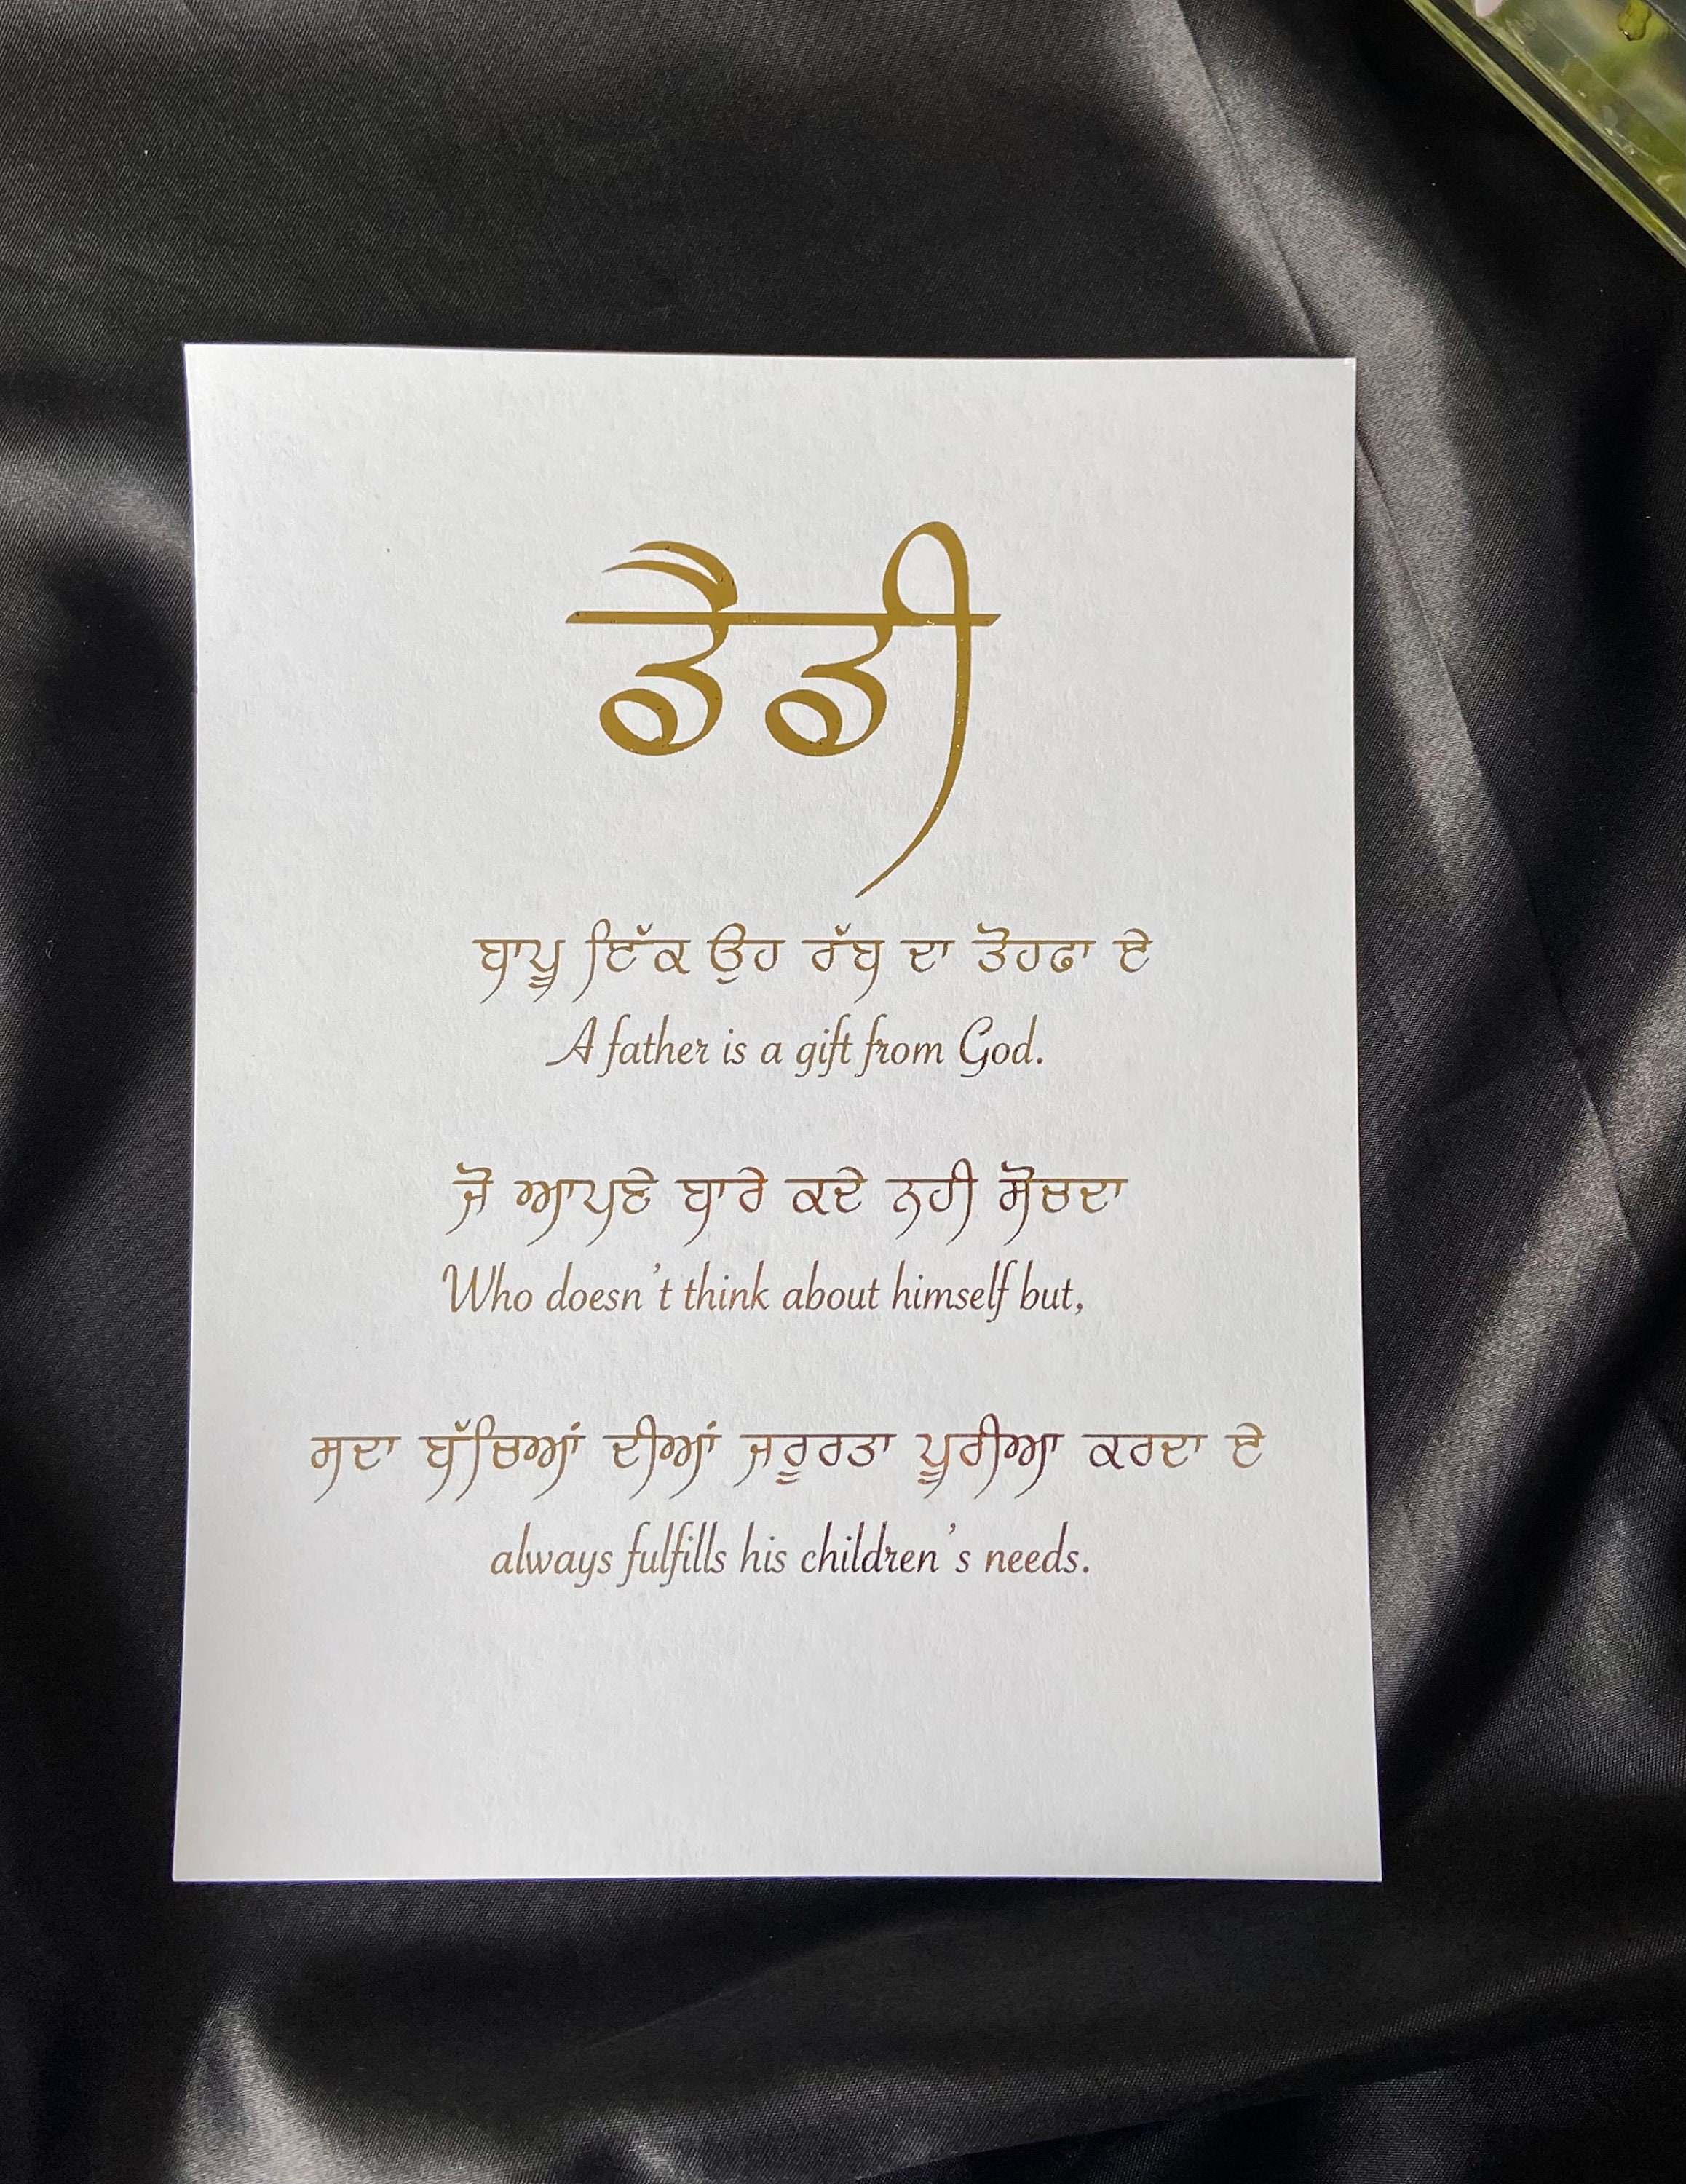 ਡੈਡੀ
ਬਾਪੂ ਇੱਕ ਉਹ ਰੱਬ ਦਾ ਤੋਹਫਾ ਏ
A father is a gift from God.
ਜੋ ਆਪਣੇ ਬਾਰੇ ਕਦੇ ਨਹੀ ਸੋਚਦਾ
Who doesn't think about himself but,
ਸਦਾ ਬੱਚਿਆਂ ਦੀਆਂ ਜਰੂਰਤਾ ਪੂਰੀਆ ਕਰਦਾ ਏ
always fulfills his children's needs.